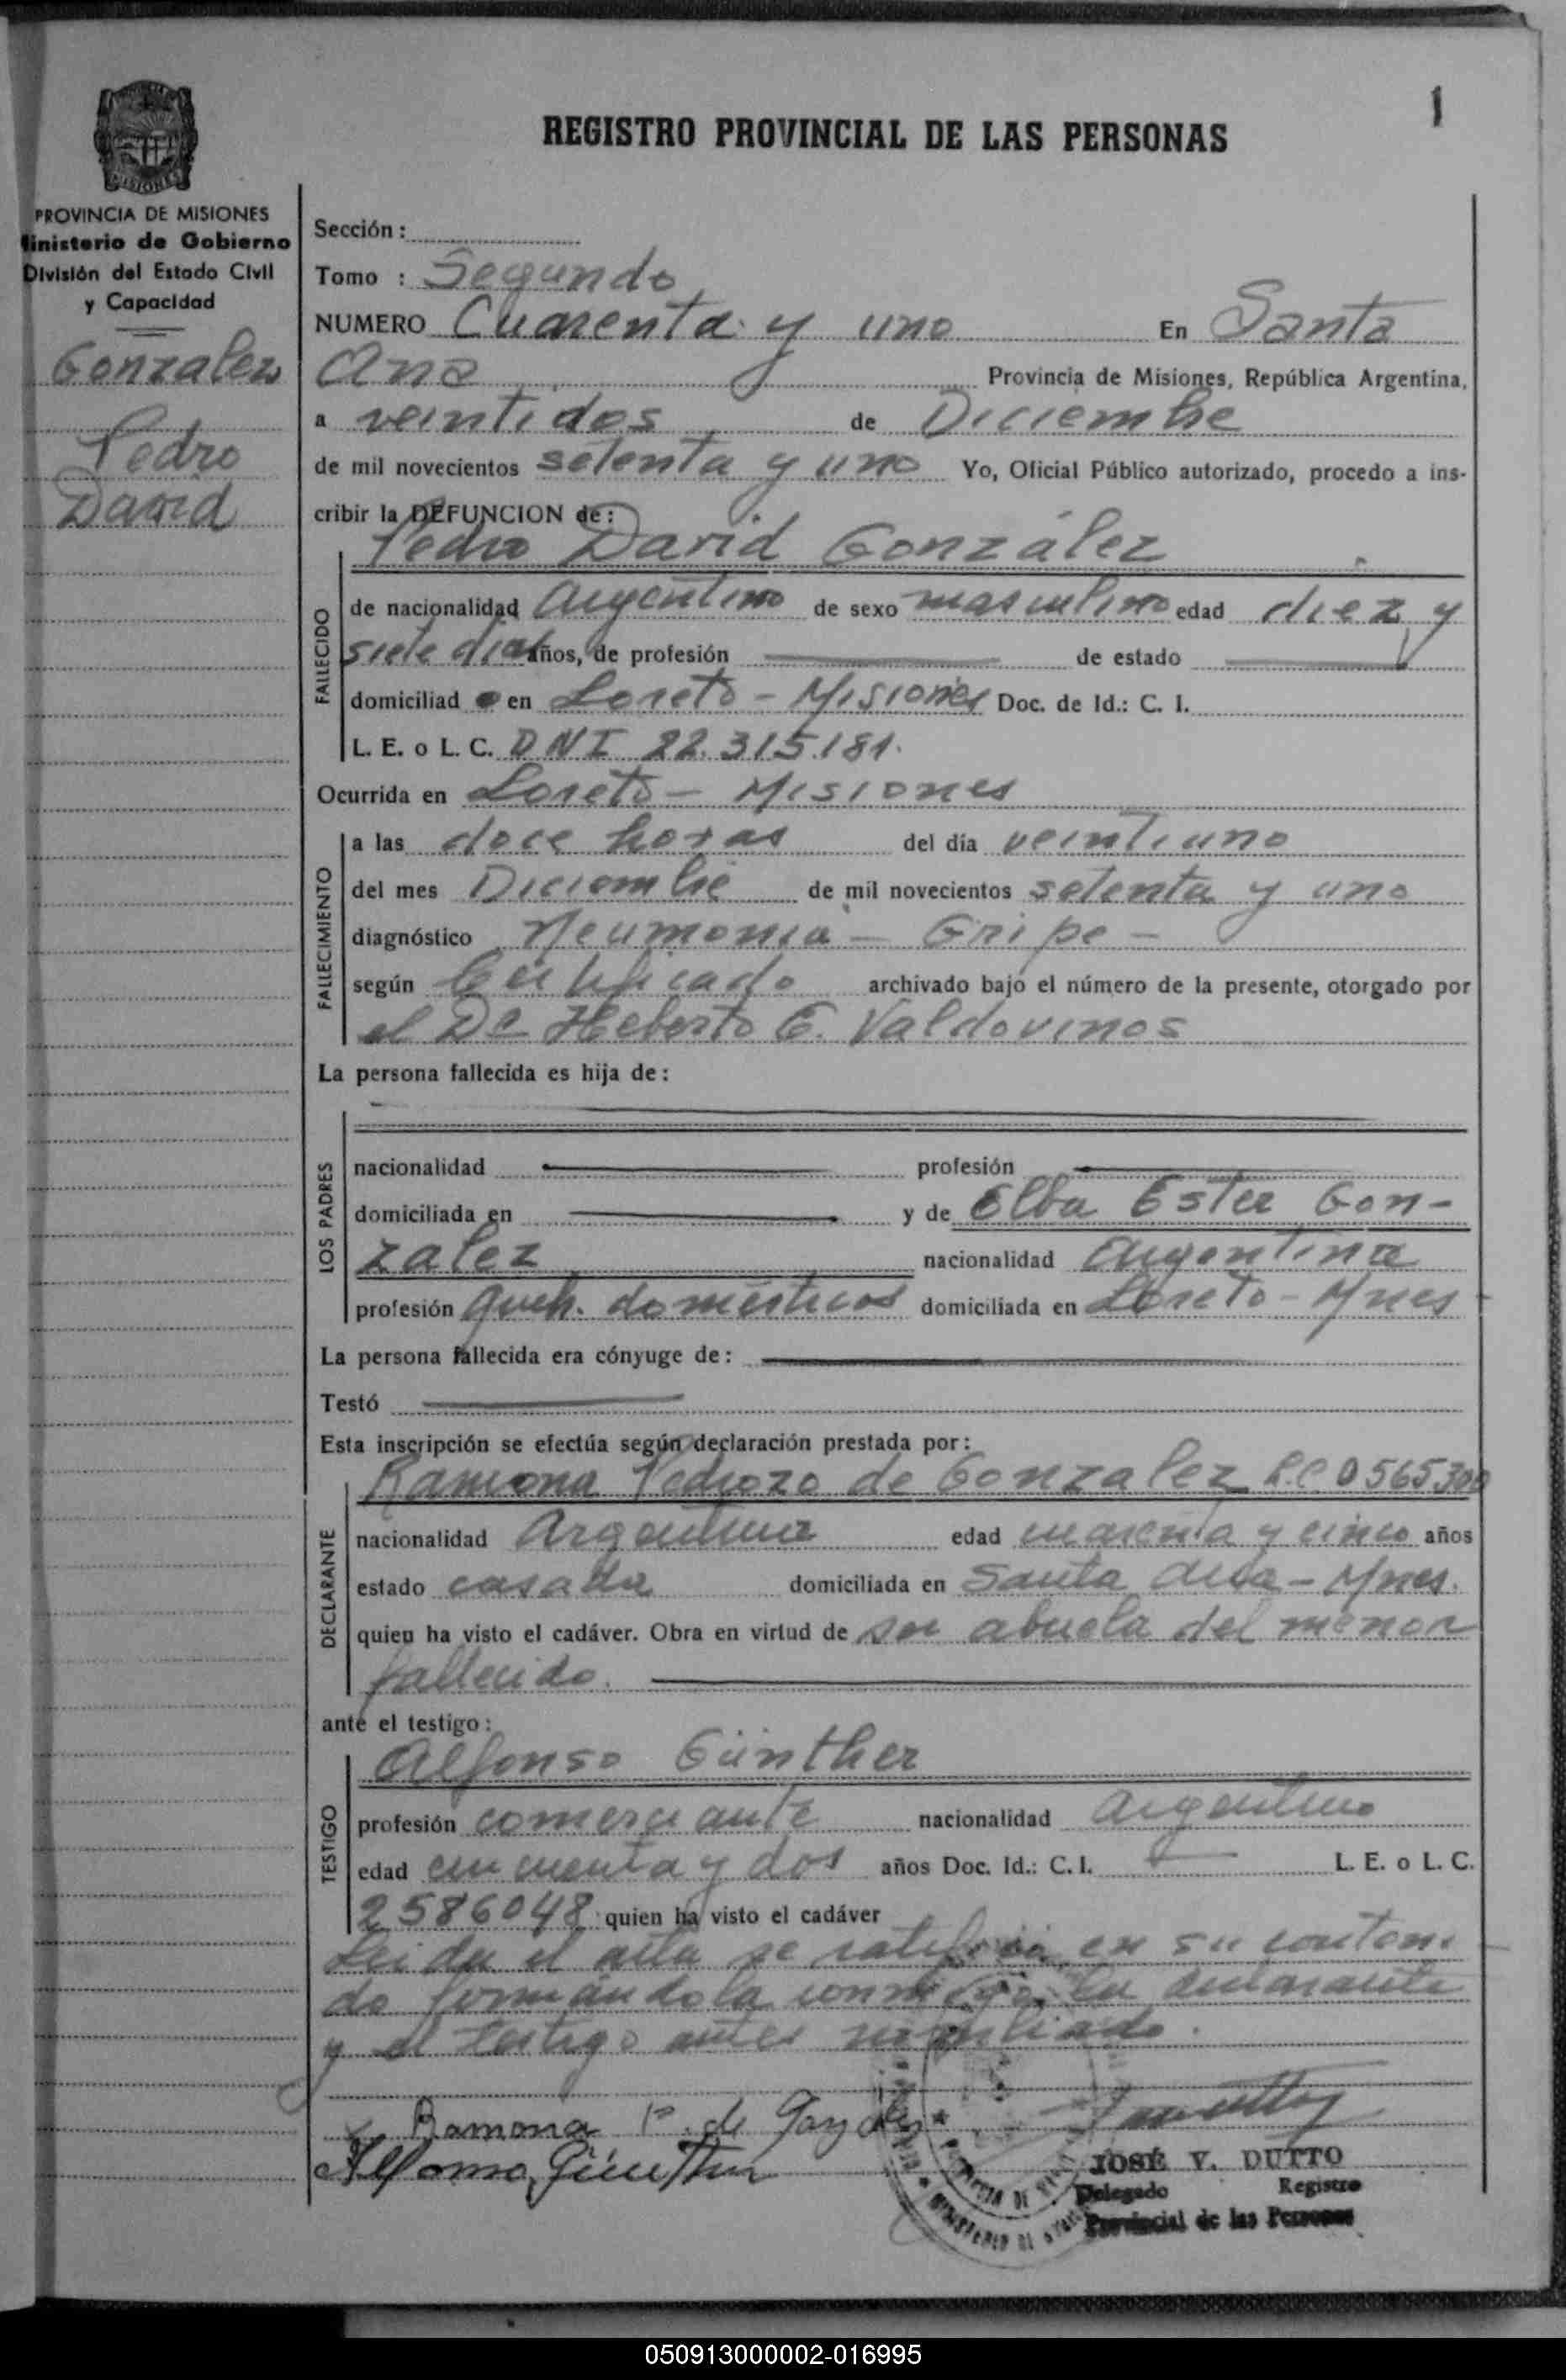 1
REGISTRO PROVINCIAL DE LAS PERSONAS
MISIONES
PROVINCIA DE MISIONES
Ministerio de Gobierno
División del Estado Civil
y Capacidad
Gonzalez
Pedro
David
Sección :
Tomo : Segundo
NUMERO Cuarenta y uno En Santa
Ana Provincia de Misiones, República Argentina,
a veintidos de Diciembre
de mil novecientos setenta y uno Yo, Oficial Público autorizado, procedo a ins-
cribir la DEFUNCION de :
Pedro David González
FALLECIDO
de nacionalidad Argentino de sexo masculino edad diez y
siete dias años, de profesión de estado
domiciliad o en Loreto - Misiones Doc. de Id.: C. I.
L. E. o L. C. DNI 22.315.181.
Ocurrida en Loreto - Misiones
FALLECIMIENTO
a las doce horas del día veintiuno
del mes Diciembre de mil novecientos setenta y uno
diagnóstico Neumonia - Gripe -
según Certificado archivado bajo el número de la presente, otorgado por
el Dr Heberto E. Valdovinos
La persona fallecida es hija de :
LOS PADRES
nacionalidad profesión
domiciliada en y de Elba Ester Gon-
zalez nacionalidad Argentina
profesión queh. domésticos domiciliada en Loreto - Mnes
La persona fallecida era cónyuge de :
Testó
Esta inscripción se efectúa según declaración prestada por :
Ramona Pedrozo de Gonzalez L.C. 0565300
DECLARANTE
nacionalidad Argentina edad cuarenta y cinco años
estado casada domiciliada en Santa Ana - Mnes.
quien ha visto el cadáver. Obra en virtud de ser abuela del menor
fallecido.
ante el testigo :
Alfonso Günther
TESTIGO
profesión comerciante nacionalidad Argentino
edad cincuenta y dos años Doc. Id.: C. I. L. E. o L. C.
2586048 quien ha visto el cadáver
Leida el acta se ratifican en su conteni
do firmándola conmigo la declarante
y el testigo antes
Ramona P. de Gonzalez
Alfonso Günther
JOSÉ V. DUTTO
Delegado Registro
Provincial de las Personas
050913000002-016995